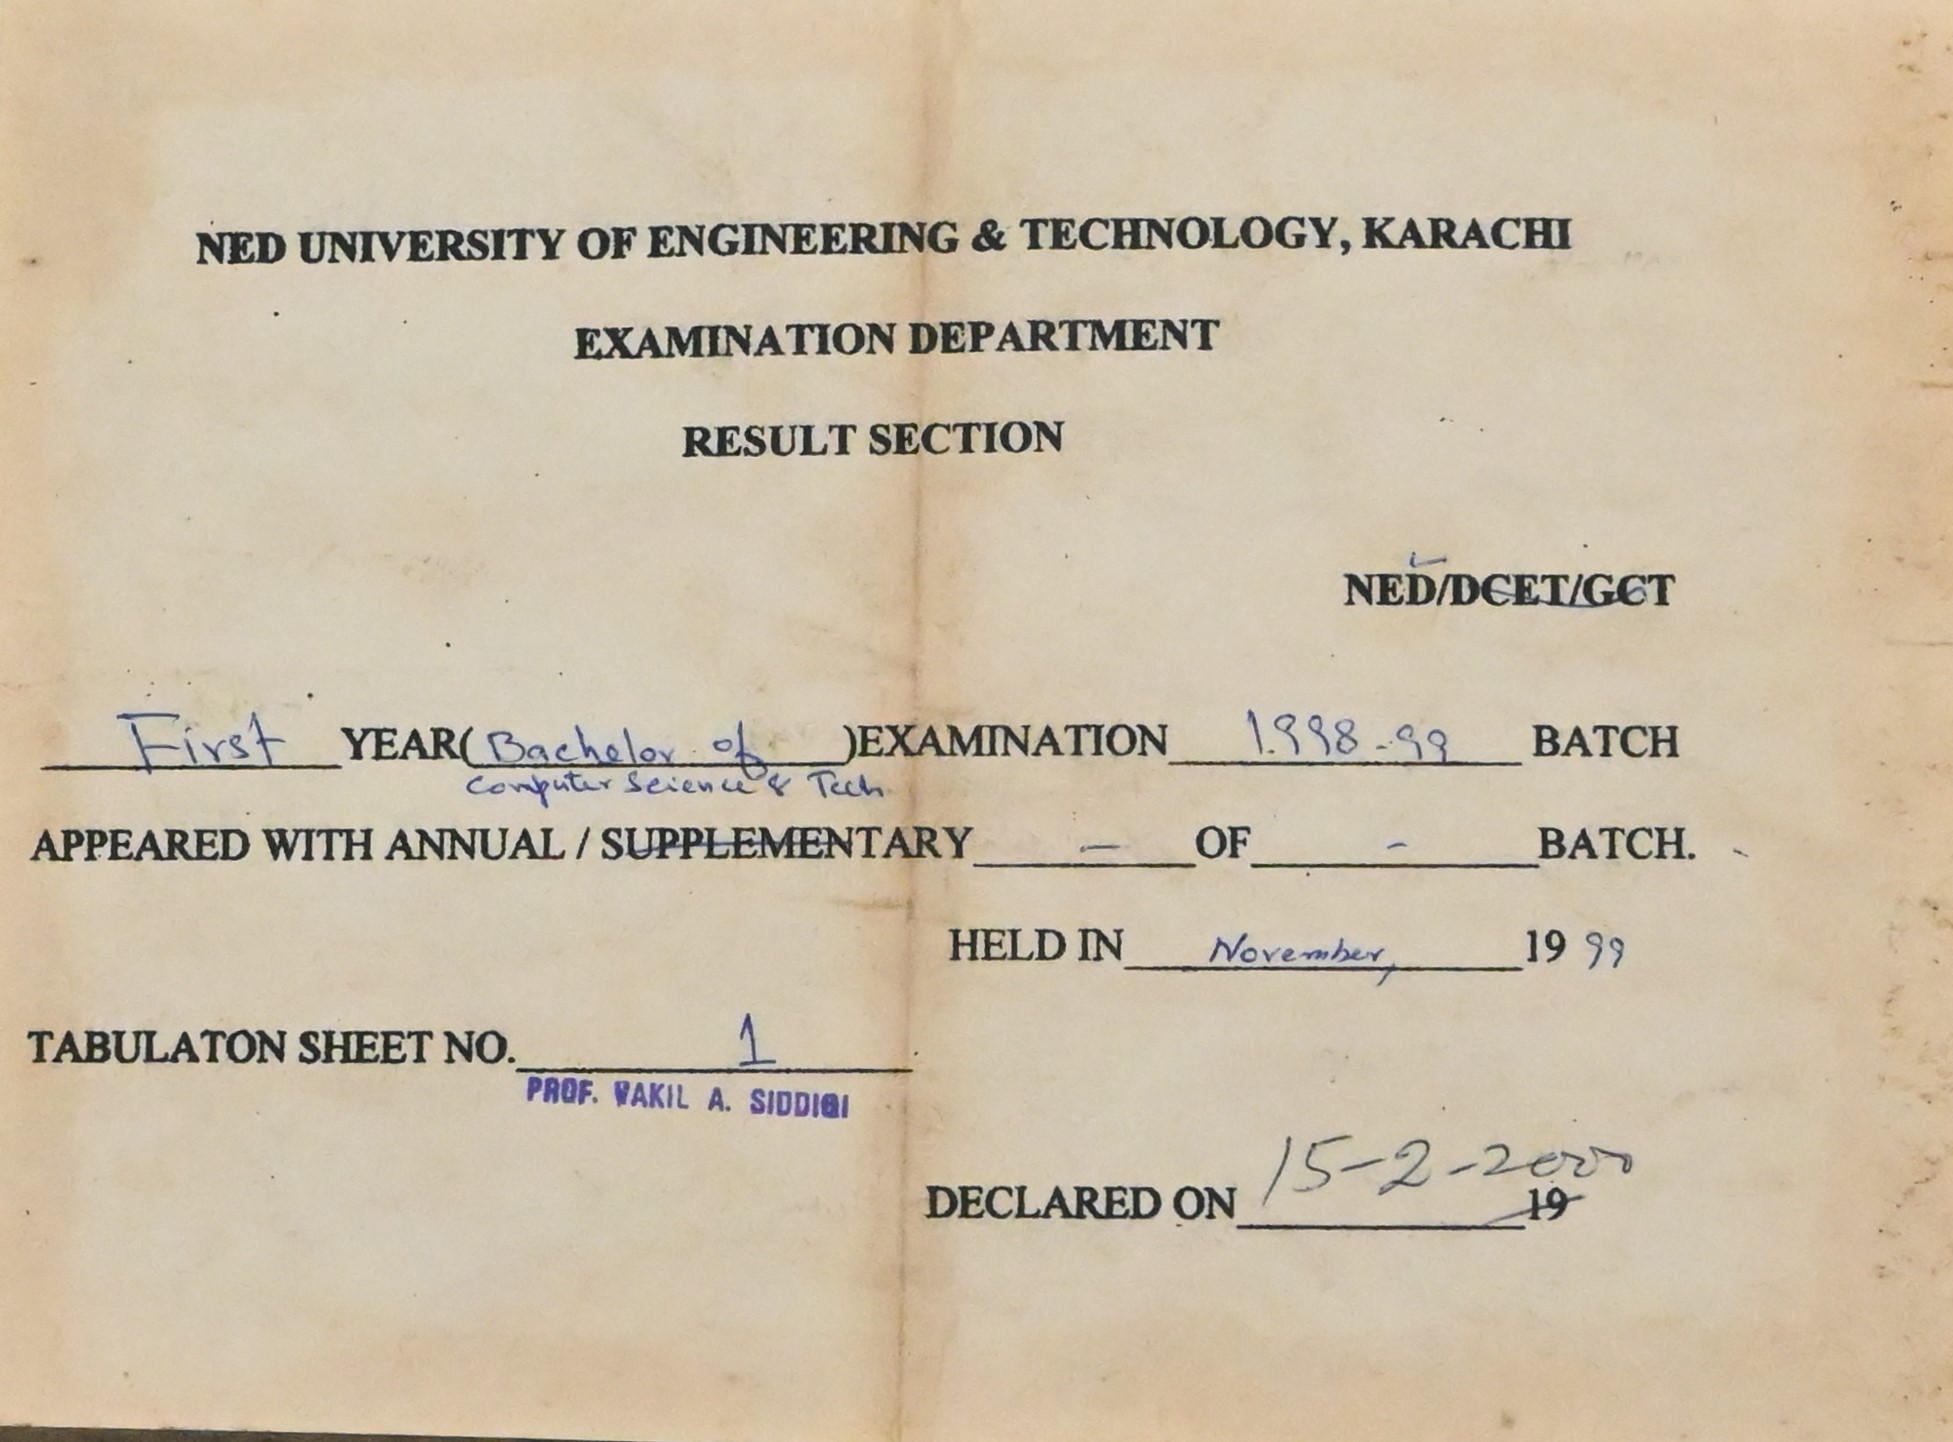 NED UNIVERSITY OF ENGINEERING & TECHNOLOGY, KARACHI
EXAMINATION DEPARTMENT
RESULT SECTION
NED/DCET/GCT
First YEAR( Bachelor of )EXAMINATION 1998-99 BATCH
Computer Science & Tech.
APPEARED WITH ANNUAL / SUPPLEMENTARY - OF - BATCH.
HELD IN November, 19 99
TABULATON SHEET NO. 1
PROF. VAKIL A. SIDDIQI
15-2-2000
DECLARED ON 19